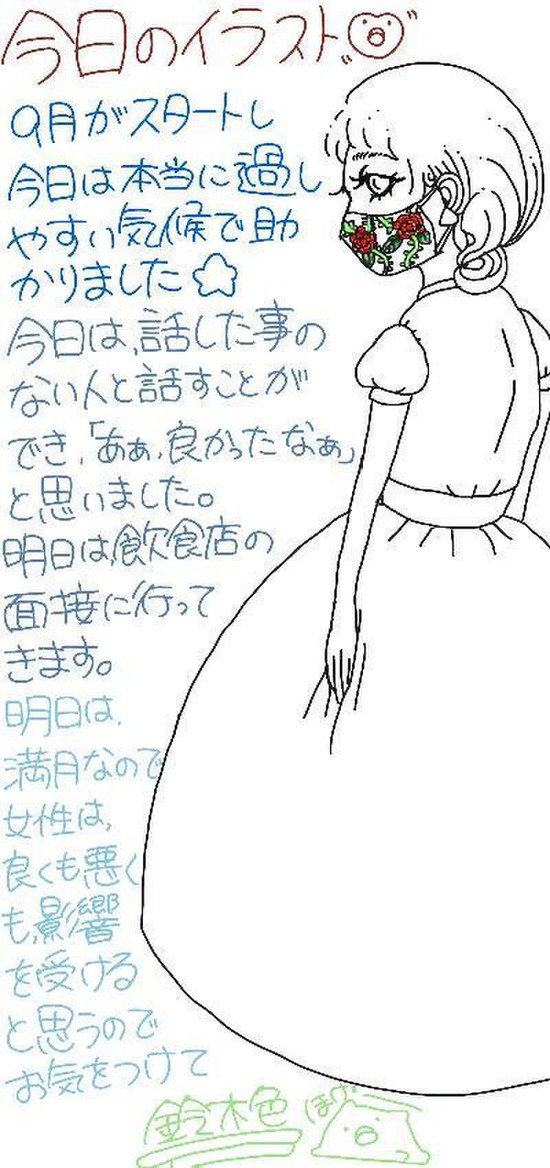 今日のイラスト
9月がスタートし
今日は本当に過し
やすい気候で助
かりました☆
今日は、話した事の
ない人と話すことが
でき、「あぁ、良かったなぁ」
と思いました。
明日は、飲食店の
面接に行って
きます。
明日は、
満月なので
女性は、
良くも悪く
も、影響
を受ける
と思うので
お気をつけて
鈴木色 ほげ